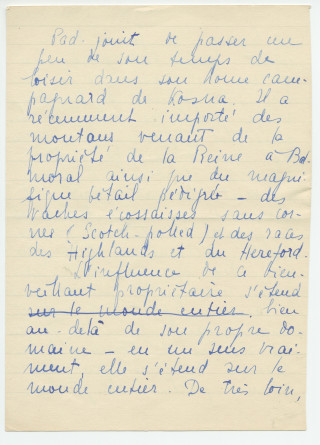 Pad. jouit de passer un
peu de son temps de
loisir dans son home cam-
pagnard de Kosna. Il a
récemment importé des
moutons venant de la
propriété de la Reine à Bal-
moral ainsi que du magni-
fique bétail pédigré – des
vaches écossaisses sans cor-
nes (Scotch-polled) et des races
des Highlands et du Hereford.
L'influence de ce bien-
veillant propriétaire s'étend
sur le monde entier. bien
au-delà de son propre do-
maine – en un sens vrai-
ment, elle s'étend sur le
monde entier. De très loin,